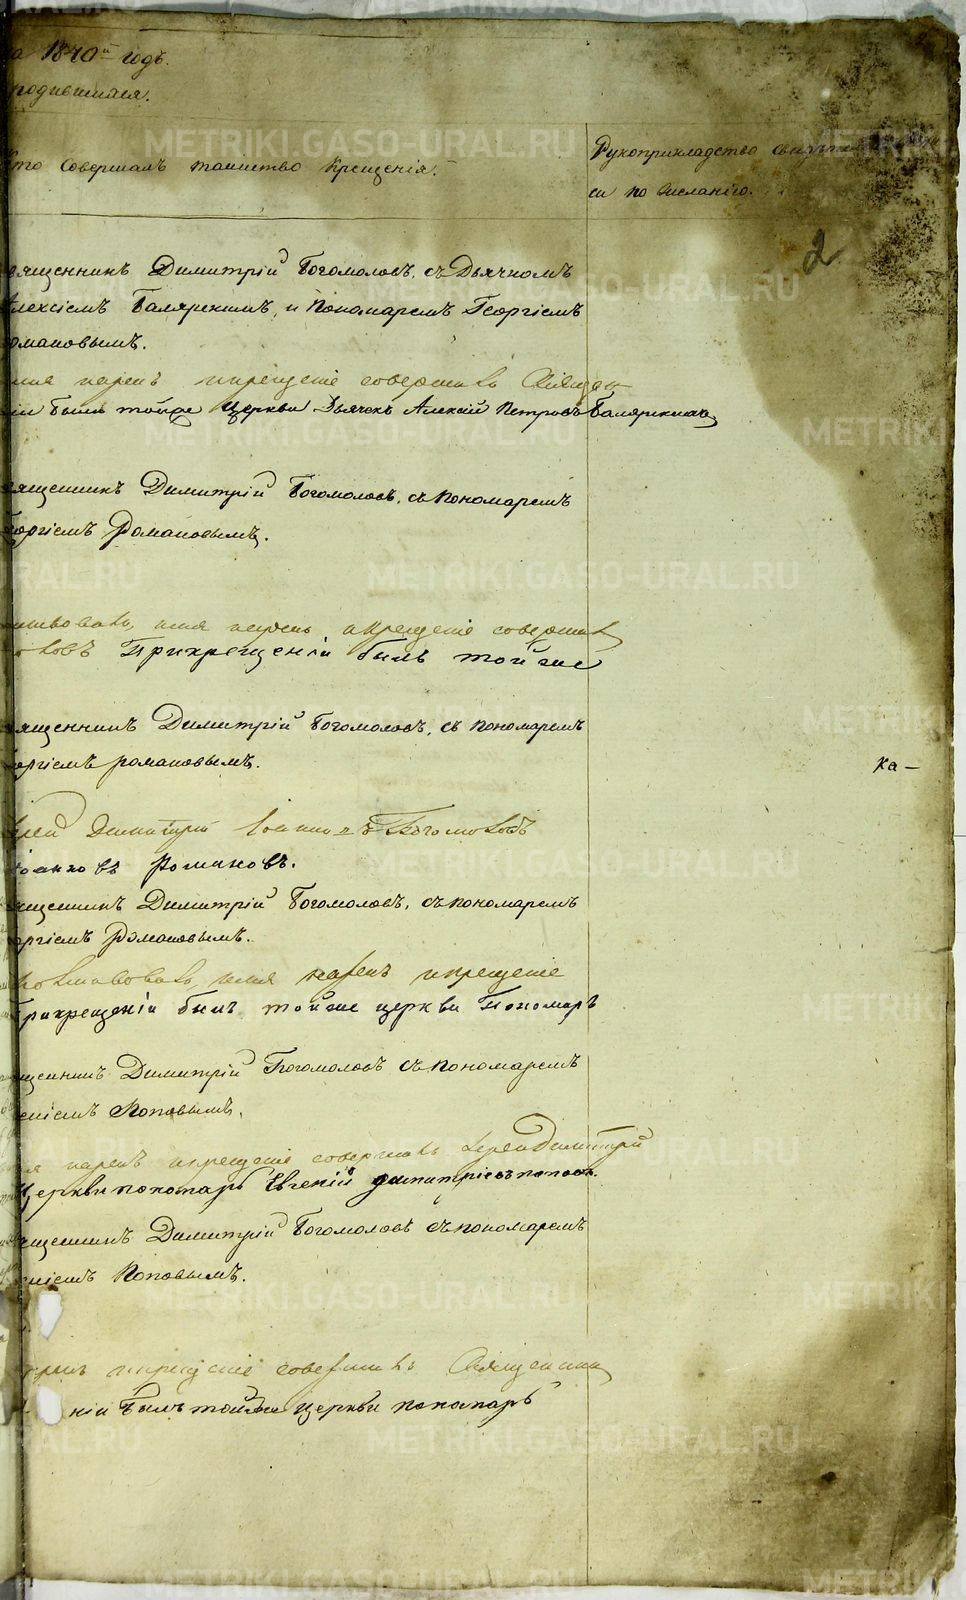 на 1840й годъ.
родившихся.
Кто совершалъ таинство крещенія.
Рукоприкладство свидѣтелей
си по желанію.
2
Священникъ Димитрій Богомоловъ, съ Дьячкомъ
Алексіемъ Баляркинымъ, и Пономаремъ Георгіемъ
Романовымъ.
имя нарекъ и крещеніе совершилъ Священ
ніи былъ тойже Церкви Дьячекъ Алексій Петровъ Баляркинъ
Священникъ Димитрій Богомоловъ, съ Пономаремъ
Георгіемъ Романовымъ.
имя нарекъ, и крещеніе совершилъ
При крещеніи былъ тойже
Священникъ Димитрій Богомоловъ, съ Пономаремъ
Георгіемъ Романовымъ.
ка-
Іерей Димитрій Іоанновъ Богомоловъ
Іоанновъ Романовъ.
Священникъ Димитрій Богомоловъ, съ пономаремъ
Георгіемъ Романовымъ.
имя нарекъ и крещеніе
При крещеніи былъ тойже церкви Пономарь
Священникъ Димитрій Богомоловъ съ пономаремъ
Евгеніемъ Поповымъ.
имя нарекъ и крещеніе совершилъ Іерей Димитрій
Церкви пономарь Евгеній Димитріевъ Поповъ.
Священникъ Димитрій Богомоловъ съ пономаремъ
Евгеніемъ Поповымъ.
нарекъ и крещеніе совершилъ Священникъ
ніи былъ тойже церкви пономарь
METRIKI.GASO-URAL.RU